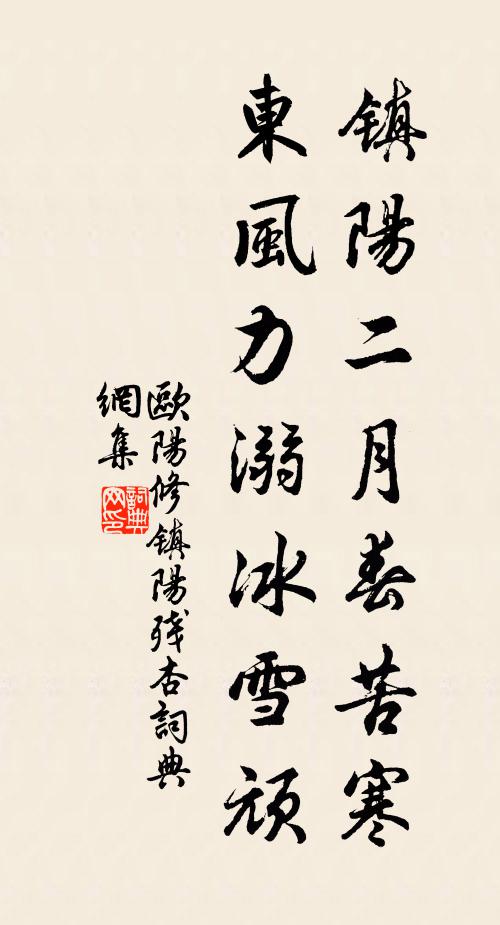 鎮陽二月春苦寒
東風力溺冰雪頑
歐陽修鎮陽残杏詞典
網集
詞典
网印